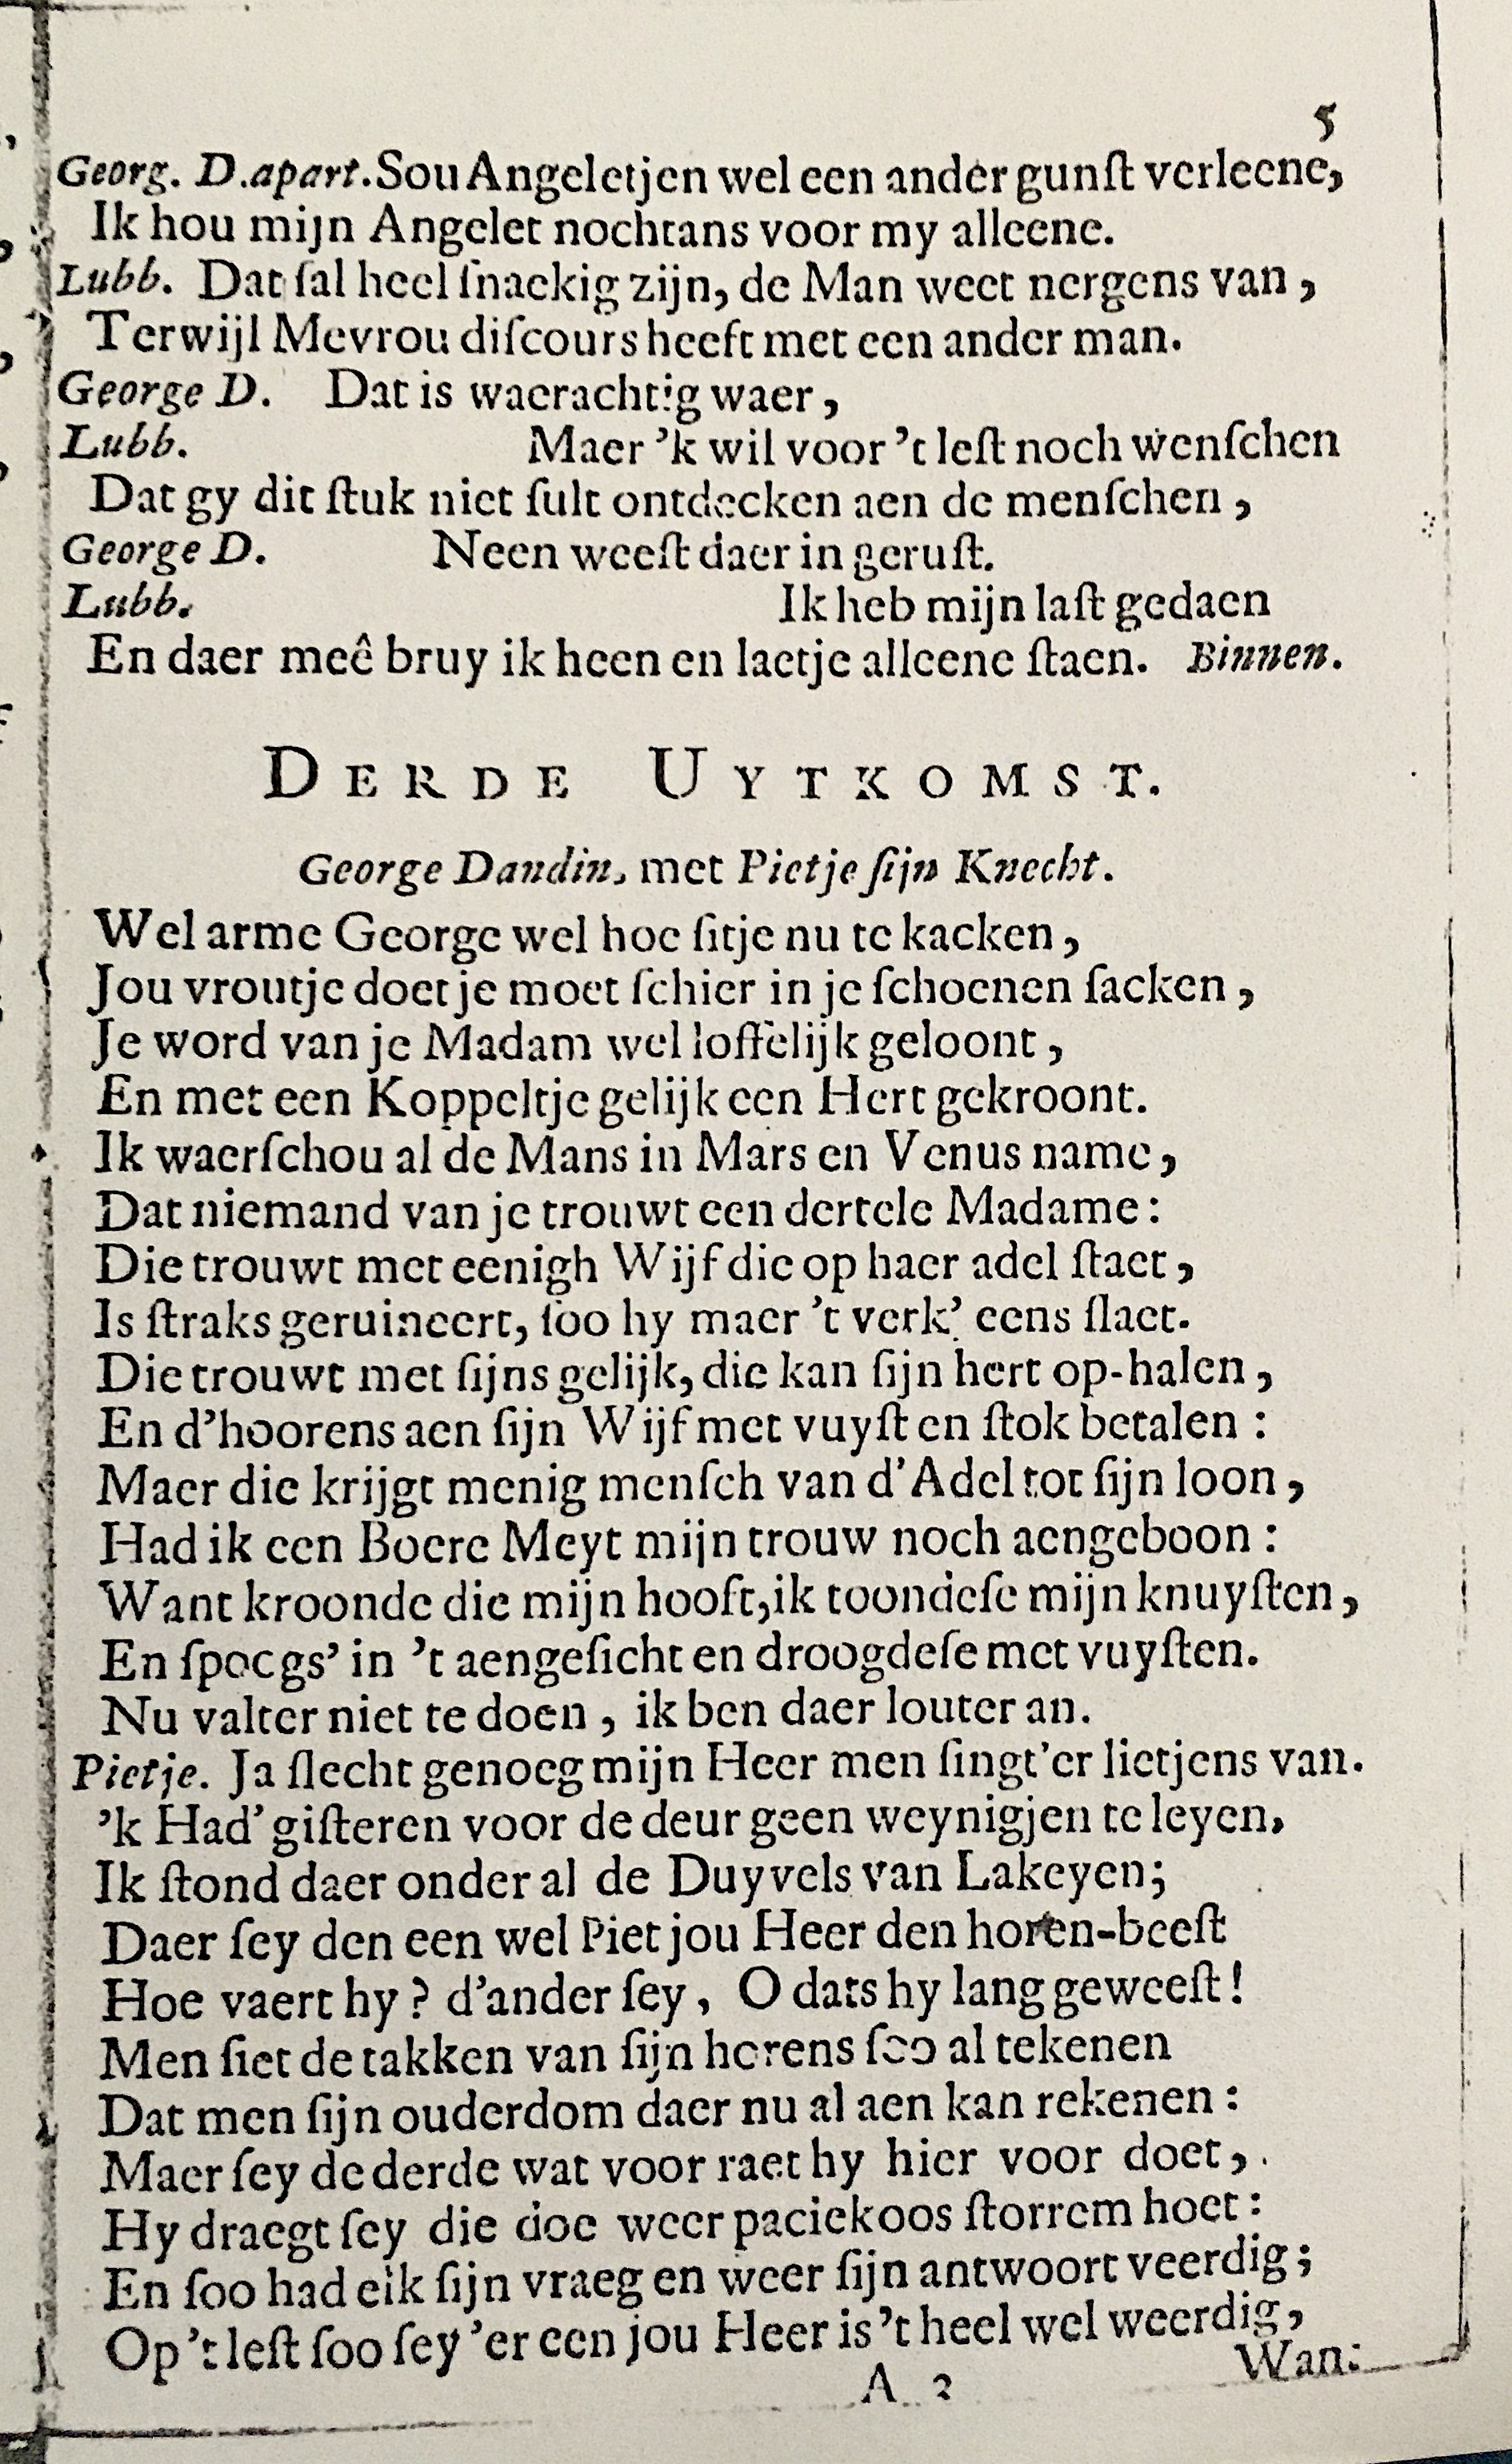 5
Georg. D. apart. Sou Angeletjen wel een ander gunſt verleene,
Ik hou mijn Angelet nochtans voor my alleene.
Lubb. Dat ſal heel ſnaekig zijn, de Man weet nergens van,
Terwijl Mevrou diſcours heeft met een ander man.
George D. Dat is waerachtig waer,
Lubb. Maer 'k wil voor 't leſt noch wenſchen
Dat gy dit ſtuk niet ſult ontdecken aen de menſchen,
George D. Neen weeſt daer in geruſt.
Lubb. Ik heb mijn laſt gedaen
En daer meê bruy ik heen en laetje alleene ſtaen. Binnen.
DERDE UYTKOMST.
George Dandin, met Pietje ſijn Knecht.
Wel arme George wel hoe ſitje nu te kacken,
Jou vroutje doet je moet ſchier in je ſchoenen ſacken,
Je word van je Madam wel loffelijk geloont,
En met een Koppeltje gelijk een Hert gekroont.
Ik waerſchou al de Mans in Mars en Venus name,
Dat niemand van je trouwt een dertele Madame:
Die trouwt met eenigh Wijf die op haer adel ſtaet,
Is ſtraks geruineert, ſoo hy maer 't verk' eens ſlaet.
Die trouwt met ſijns gelijk, die kan ſijn hert op-halen,
En d'hoorens aen ſijn Wijf met vuyſt en ſtok betalen:
Maer die krijgt menig menſch van d'Adel tot ſijn loon,
Had ik een Boere Meyt mijn trouw noch aengeboon:
Want kroonde die mijn hooft, ik toondeſe mijn knuyſten,
En ſpoegs' in 't aengeſicht en droogdeſe met vuyſten.
Nu valter niet te doen, ik ben daer louter an.
Pietje. Ja ſlecht genoeg mijn Heer men ſingt'er lietjens van.
'k Had' giſteren voor de deur geen weynigjen te leyen,
Ik ſtond daer onder al de Duyvels van Lakeyen;
Daer ſey den een wel Piet jou Heer den horen-beeſt
Hoe vaert hy? d'ander ſey, O dats hy lang geweeſt!
Men ſiet de takken van ſijn horens ſoo al tekenen
Dat men ſijn ouderdom daer nu al aen kan rekenen:
Maer ſey de derde wat voor raet hy hier voor doet,
Hy draegt ſey die doe weer paciekoos ſtorrem hoet:
En ſoo had elk ſijn vraeg en weer ſijn antwoort veerdig;
Op 't leſt ſoo ſey 'er een jou Heer is 't heel wel weerdig,
A 2 Wan: